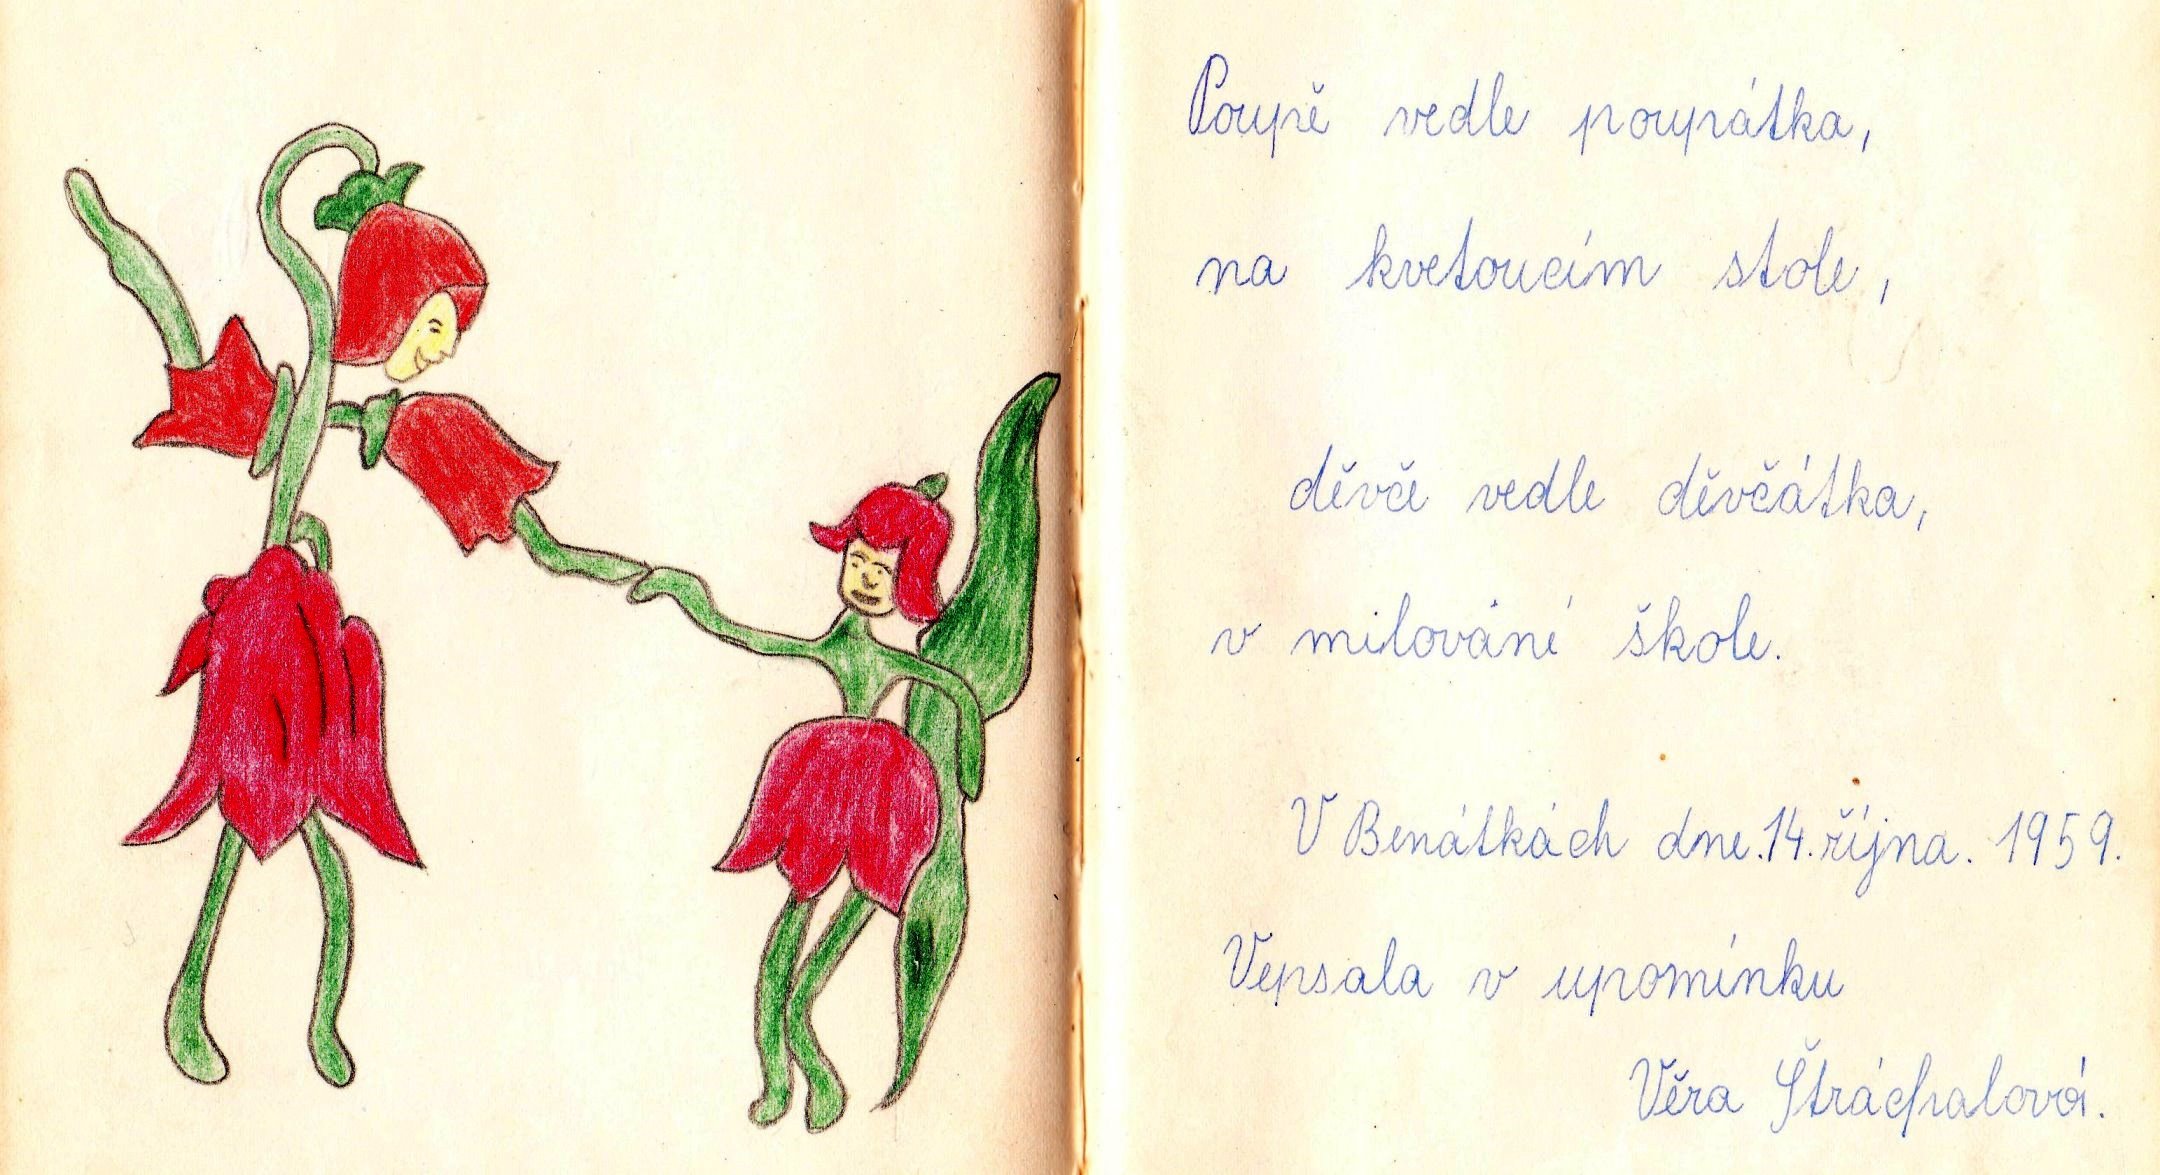 Poupě vedle poupátka,
na kvetoucím stole,
děvče vedle děvčátka,
v milováné škole.
V Benátkách dne.14.října. 1959.
Vepsala v upomínku
Věra